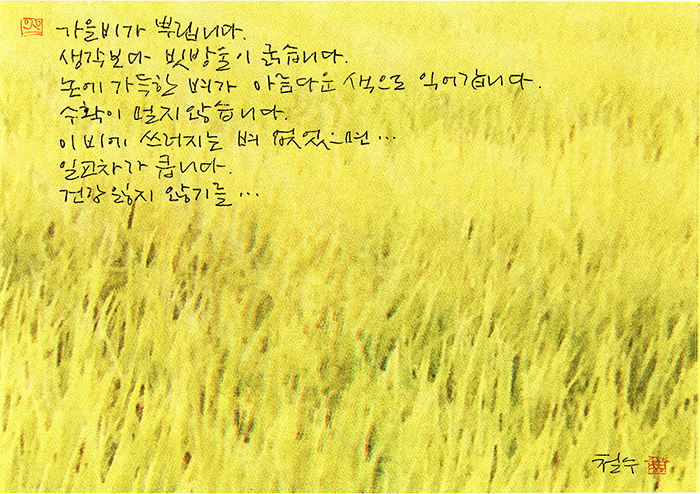 가을비가 뿌립니다.
생각보다 빗방울이 굵습니다.
논에 가득한 벼가 아름다운 색으로 익어갑니다.
수확이 멀지 않습니다.
이 비에 쓰러지는 벼 없었으면…
일교차가 큽니다.
건강 잃지 않기를…
철수